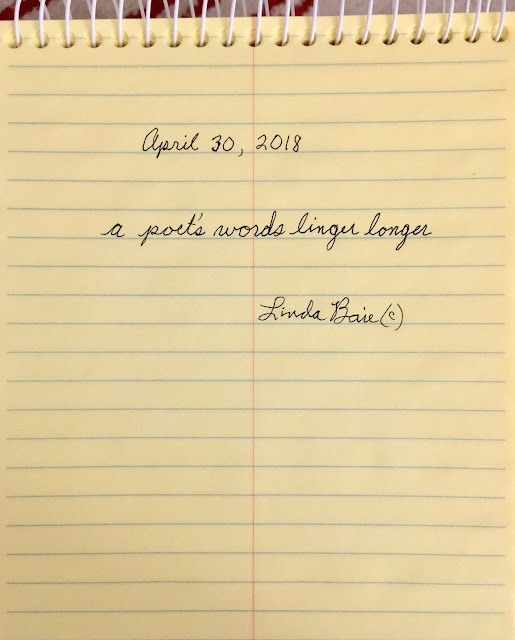 April 30, 2018
a poet's words linger longer
Linda Baie (c)